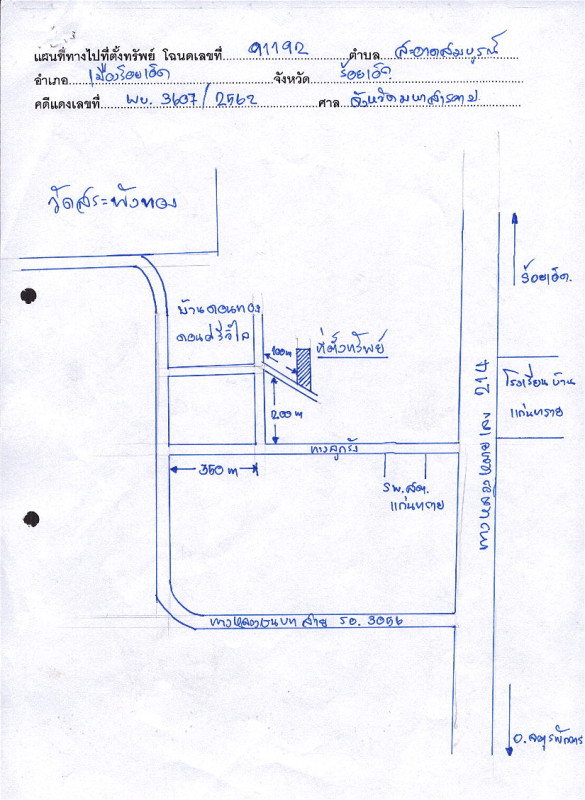 แผนที่ทางไปที่ตั้งทรัพย์ โฉนดเลขที่ 91192 ตำบล สะอาดสมบูรณ์
อำเภอ เมืองร้อยเอ็ด จังหวัด ร้อยเอ็ด
คดีแดงเลขที่ ผบ. 3607/2562 ศาล จังหวัดมหาสารคาม
วัดสระพังทอง
ร้อยเอ็ด
บ้านดอนทอง
100 m
ที่ตั้งทรัพย์
โรงเรียนบ้าน
แก่นทราย
ทางหลวงหมายเลข 214
200 m
ทางลูกรัง
350 m
รพ.สต.
แก่นทราย
ทางหลวงชนบท สาย รอ. 3056
อ.จตุรพักตร